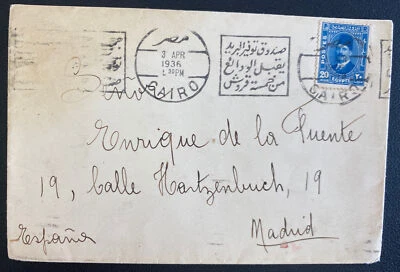 مصر
3 APR
1936
1 30 PM
CAIRO
صندوق توفير البريد
يقبل الودائع
من خمسة قروش
POSTES
20
٢٠
EGYPT
CAIRO
Señor
Enrique de la Fuente
19, Calle Hartzenbuch, 19
Madrid
España